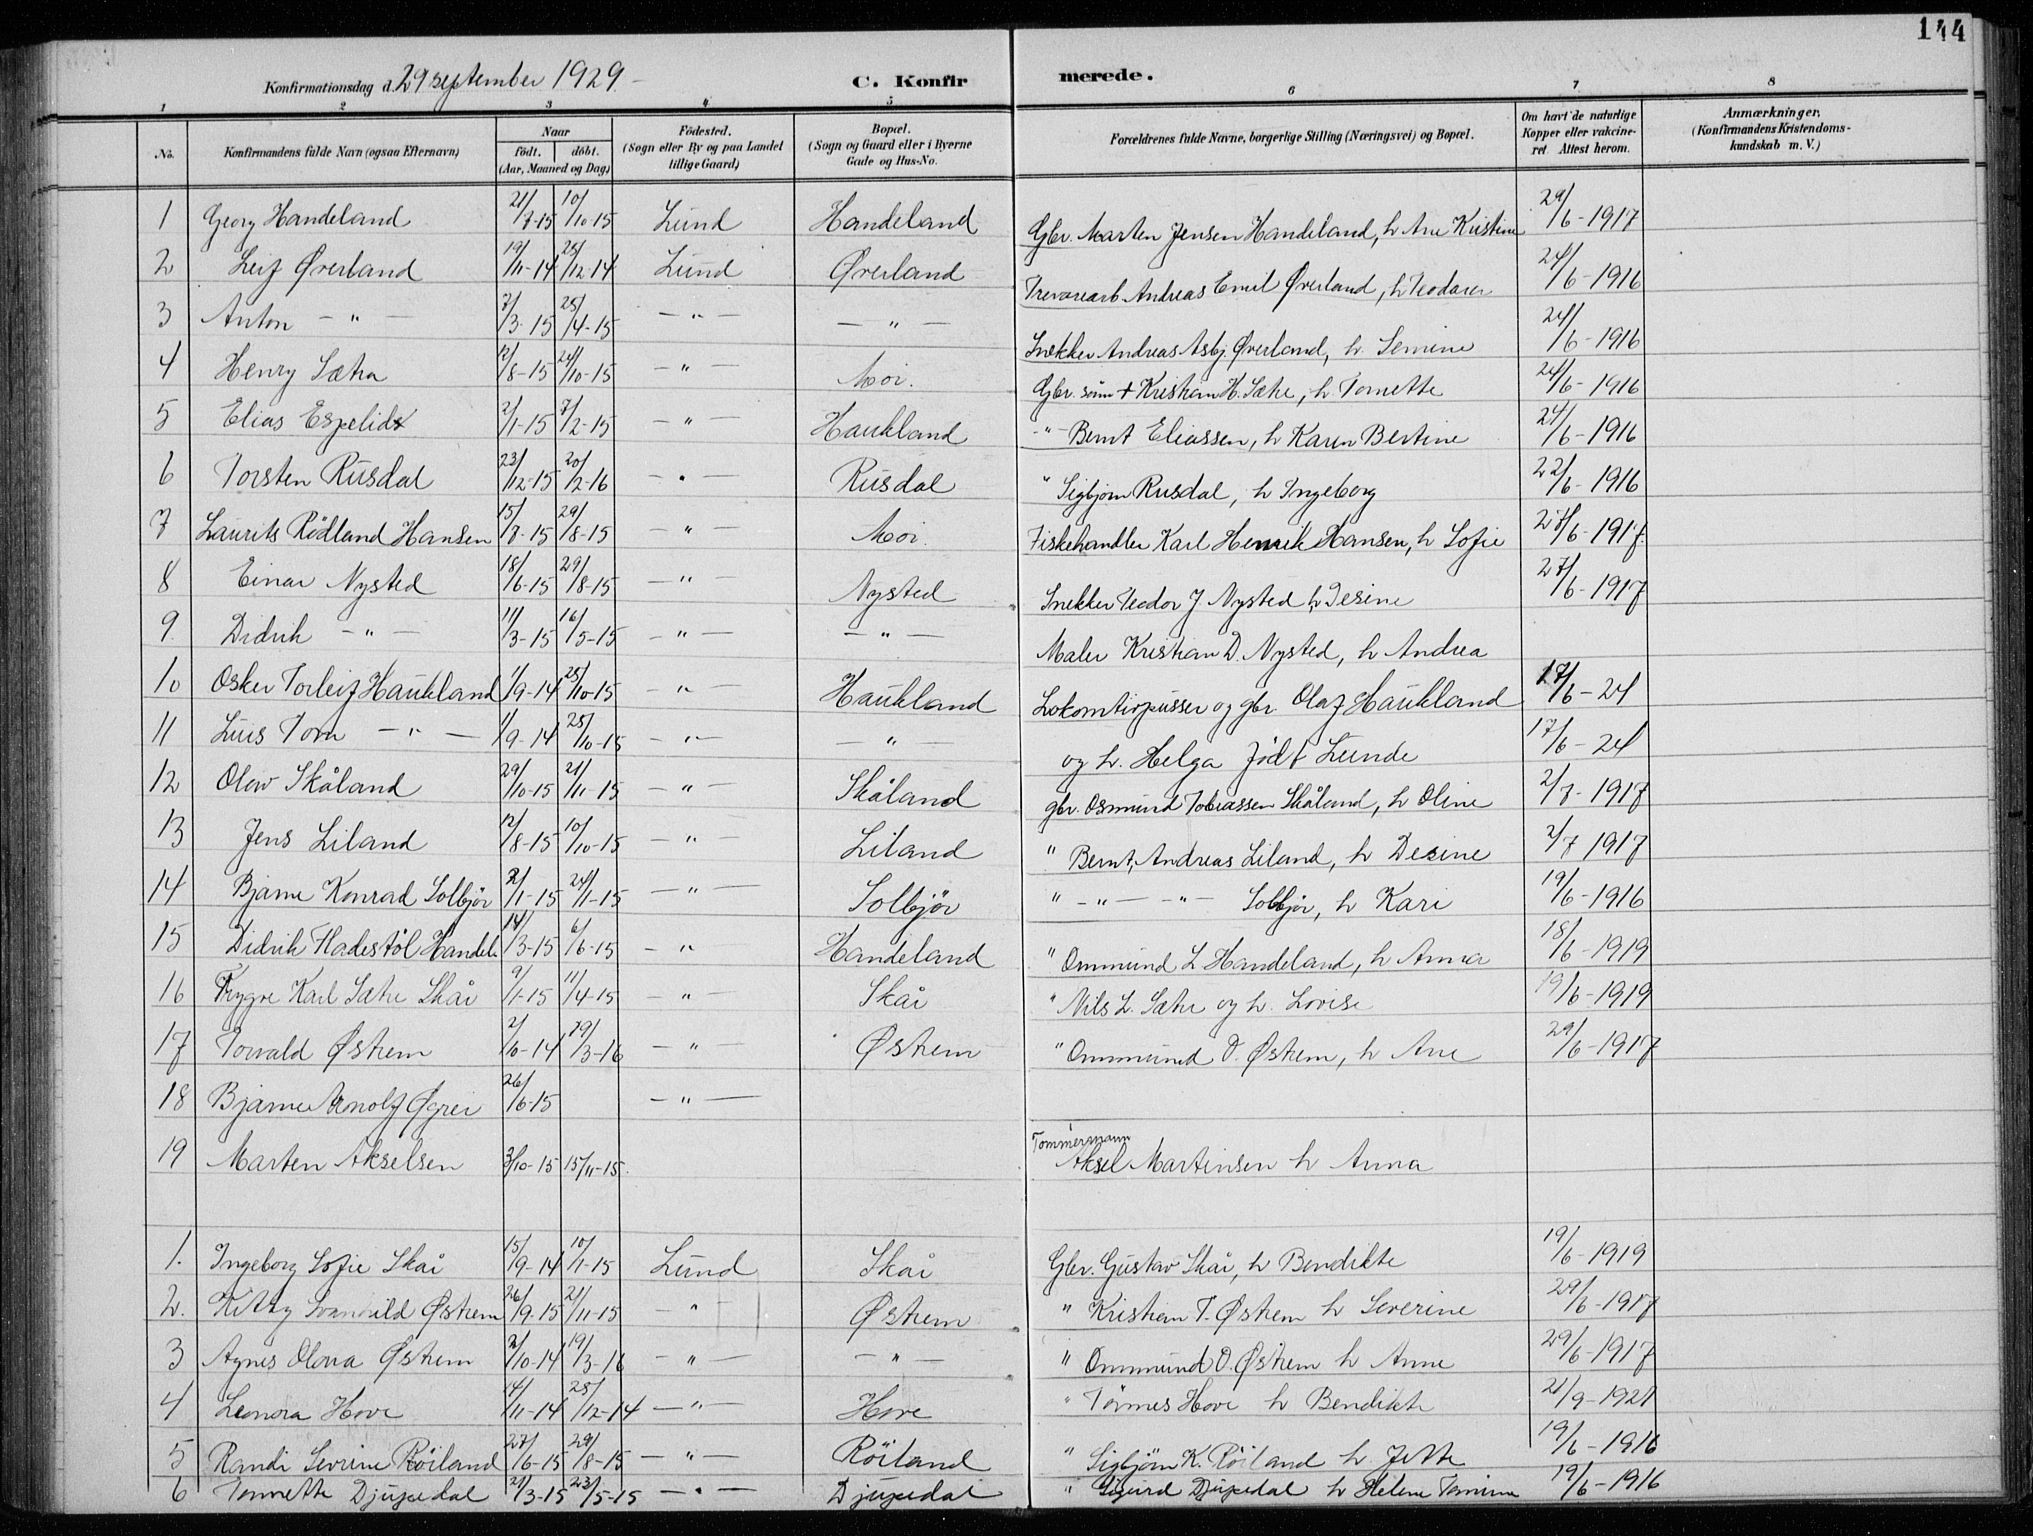 144
Konfirmationsdag d. 29 september 1929.
C. Konfirmerede.
1 2 3 4 5 6 7 8
No. Konfirmandens fulde Navn (ogsaa Efternavn) Naar födt. döbt. (Aar, Maaned og Dag) Födested. (Sogn eller By og paa Landet tillige Gaard) Bopæl. (Sogn og Gaard eller i Byerne Gade og Hus-No. Forældrenes fulde Navne, borgerlige Stilling (Næringsvei) og Bopæl. Om havt de naturlige Kopper eller vakcineret. Attest herom. Anmærkninger, (Konfirmandens Kristendomskundskab m. V.)
1 Georg Handeland 21/7-15 10/10-15 Lund Handeland Gbr. Marten Jensen Handeland, h Ane Kristine 29/6-1917
2 Leif Øverland 19/11-14 25/12-14 Lund Øverland Trevarearb. Andreas Emil Øverland, h Teodora 24/6-1916
3 Anton - " - 7/3-15 25/4-15 - " - - " - Snekker Andreas Asbj. Øverland, h. Semine 24/6-1916
4 Henry Sætra 12/8-15 24/10-15 - " - Moi. Gbr. sønn + Kristian H. Sætre, h. Tomette 24/6-1916
5 Elias Espelid 2/1-15 7/2-15 - " - Haukland - " - Bernt Eliassen, h Karen Bertine 24/6-1916
6 Torsten Rusdal 23/12-15 20/2-16 - " - Rusdal " Sigbjørn Rusdal, h Ingeborg 22/6-1916
7 Laurits Rødland Hansen 15/7-15 29/8-15 - " - Moi. Fiskehandler Karl Henrik Hansen, h Sofie 27/6-1917.
8 Einar Nysted 18/6-15 29/8-15 - " - Nysted Snekker Teodor J. Nysted h Desine 27/6-1917
9. Didrik - " - 11/3-15 16/5-15 - " - - " - Maler Kristian D. Nysted, h Andrea
10 Osker Torleif Haukland 1/9-14 25/10-15 - " - Haukland Lokomtivpusser og gbr. Olaf Haukland 17/6-24
11 Luis Torn - " - 1/9-14 25/10-15 - " - - " - og h. Helga født Lunde 17/6-24
12 Olav Skåland 29/10-15 21/11-15 - " - Skåland gbr. Osmund Tobiassen Skåland, h Oline 2/7-1917
13 Jens Liland 12/8-15 10/10-15 - " - Liland " Bernt Andreas Liland, h Desine 2/7 1917
14 Bjarne Konrad Solbjør 2/1-15 24/1-15 - " - Solbjør " - " - - " - Solbjør, h Kari 19/6-1916
15 Didrik Fladestøl Handel. 14/3-15 6/6-15 - " Handeland " Ommund L Handeland, h Anna 18/6-1919
16 Trygve Karl Sætre Skår 9/1-15 11/4-15 - " - Skår " Nils L. Sætre og h. Lovise 19/6-1919
17 Torvald Østrem 2/10-14 19/3-16 - " - Østrem " Ommund O. Østrem, h Ane 29/6-1917
18 Bjarne Arnolf Øgrei 26/6-15 - " -
19 Marten Akselsen 3/10-15 15/11-15. Tommermann Aksel Martinsen h Anna
1. Ingeborg Sofie Skår 15/9-14 10/1-15 Lund Skår Gbr. Gustav Skår, h Bendikte 19/6-1919
2. Kitty Svanvild Østrem 26/9-15 21/11-15 - " - Østrem " Kristian T. Østrem h Severine 29/6-1917
3 Agnes Olova Østrem 2/10-14 19/3-16 - " - - " - " Ommund O. Østrem h Anne 29/6-1917
4 Leonora Hove 14/11-14 25/12-14 - " - Hove " Tønnes Hove h Bendikte 21/9-1921
5 Randi Sevrine Røiland 27/6-15 29/8-15 - " - Røiland " Sigbjørn K. Røiland h Jette 19/6-1916
6 Tomette Djupedal 21/3-15 23/5-15 - " - Djupedal " Sigurd Djupedal h Helene Tomine 19/6-1916